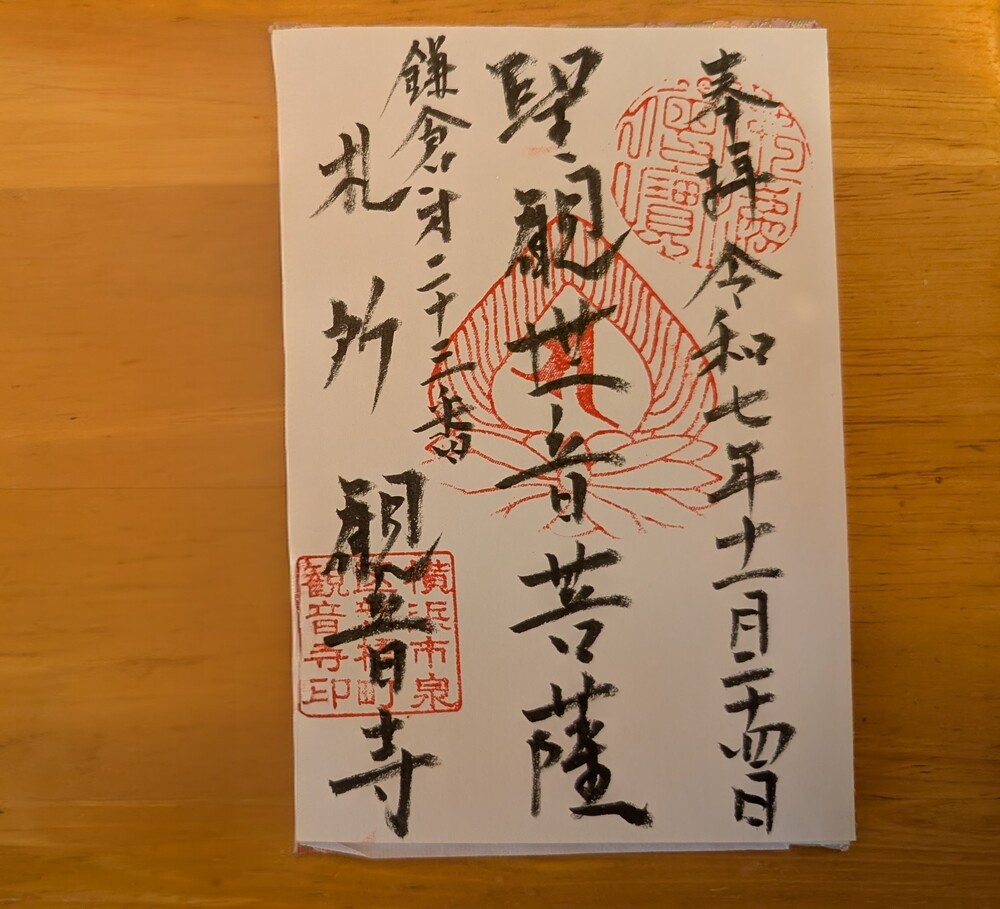 奉拝 令和七年十一月二十四日
聖観世音菩薩
鎌倉才二十三番
札所 観音寺
佛法僧寶
横浜市泉
区和泉町
観音寺印